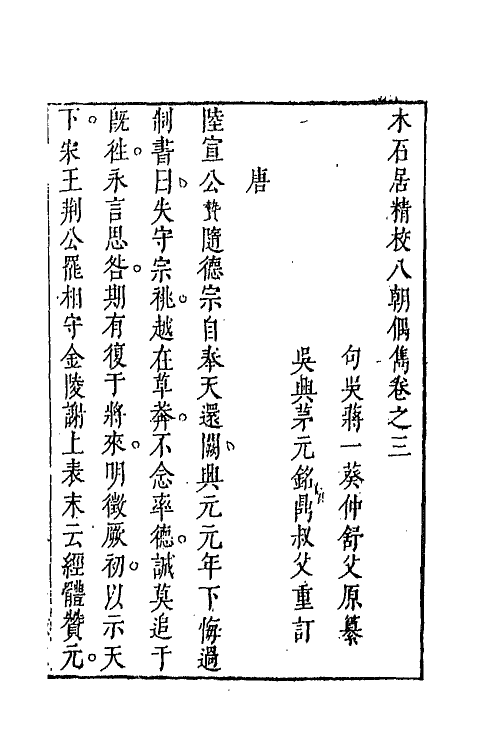 木石居精校八朝偶雋卷之三
句吳蔣一葵仲舒父原纂
吳興茅元銘鼎叔父重訂
唐
陸宣公贄隨德宗自奉天還闕興元元年下悔過
制書曰失守宗祧越在草莽不念率德誠莫追于
旣徃永言思咎期有復于將來明徵厥初以示天
下宋王荆公罷相守金陵謝上表末云經體贊元